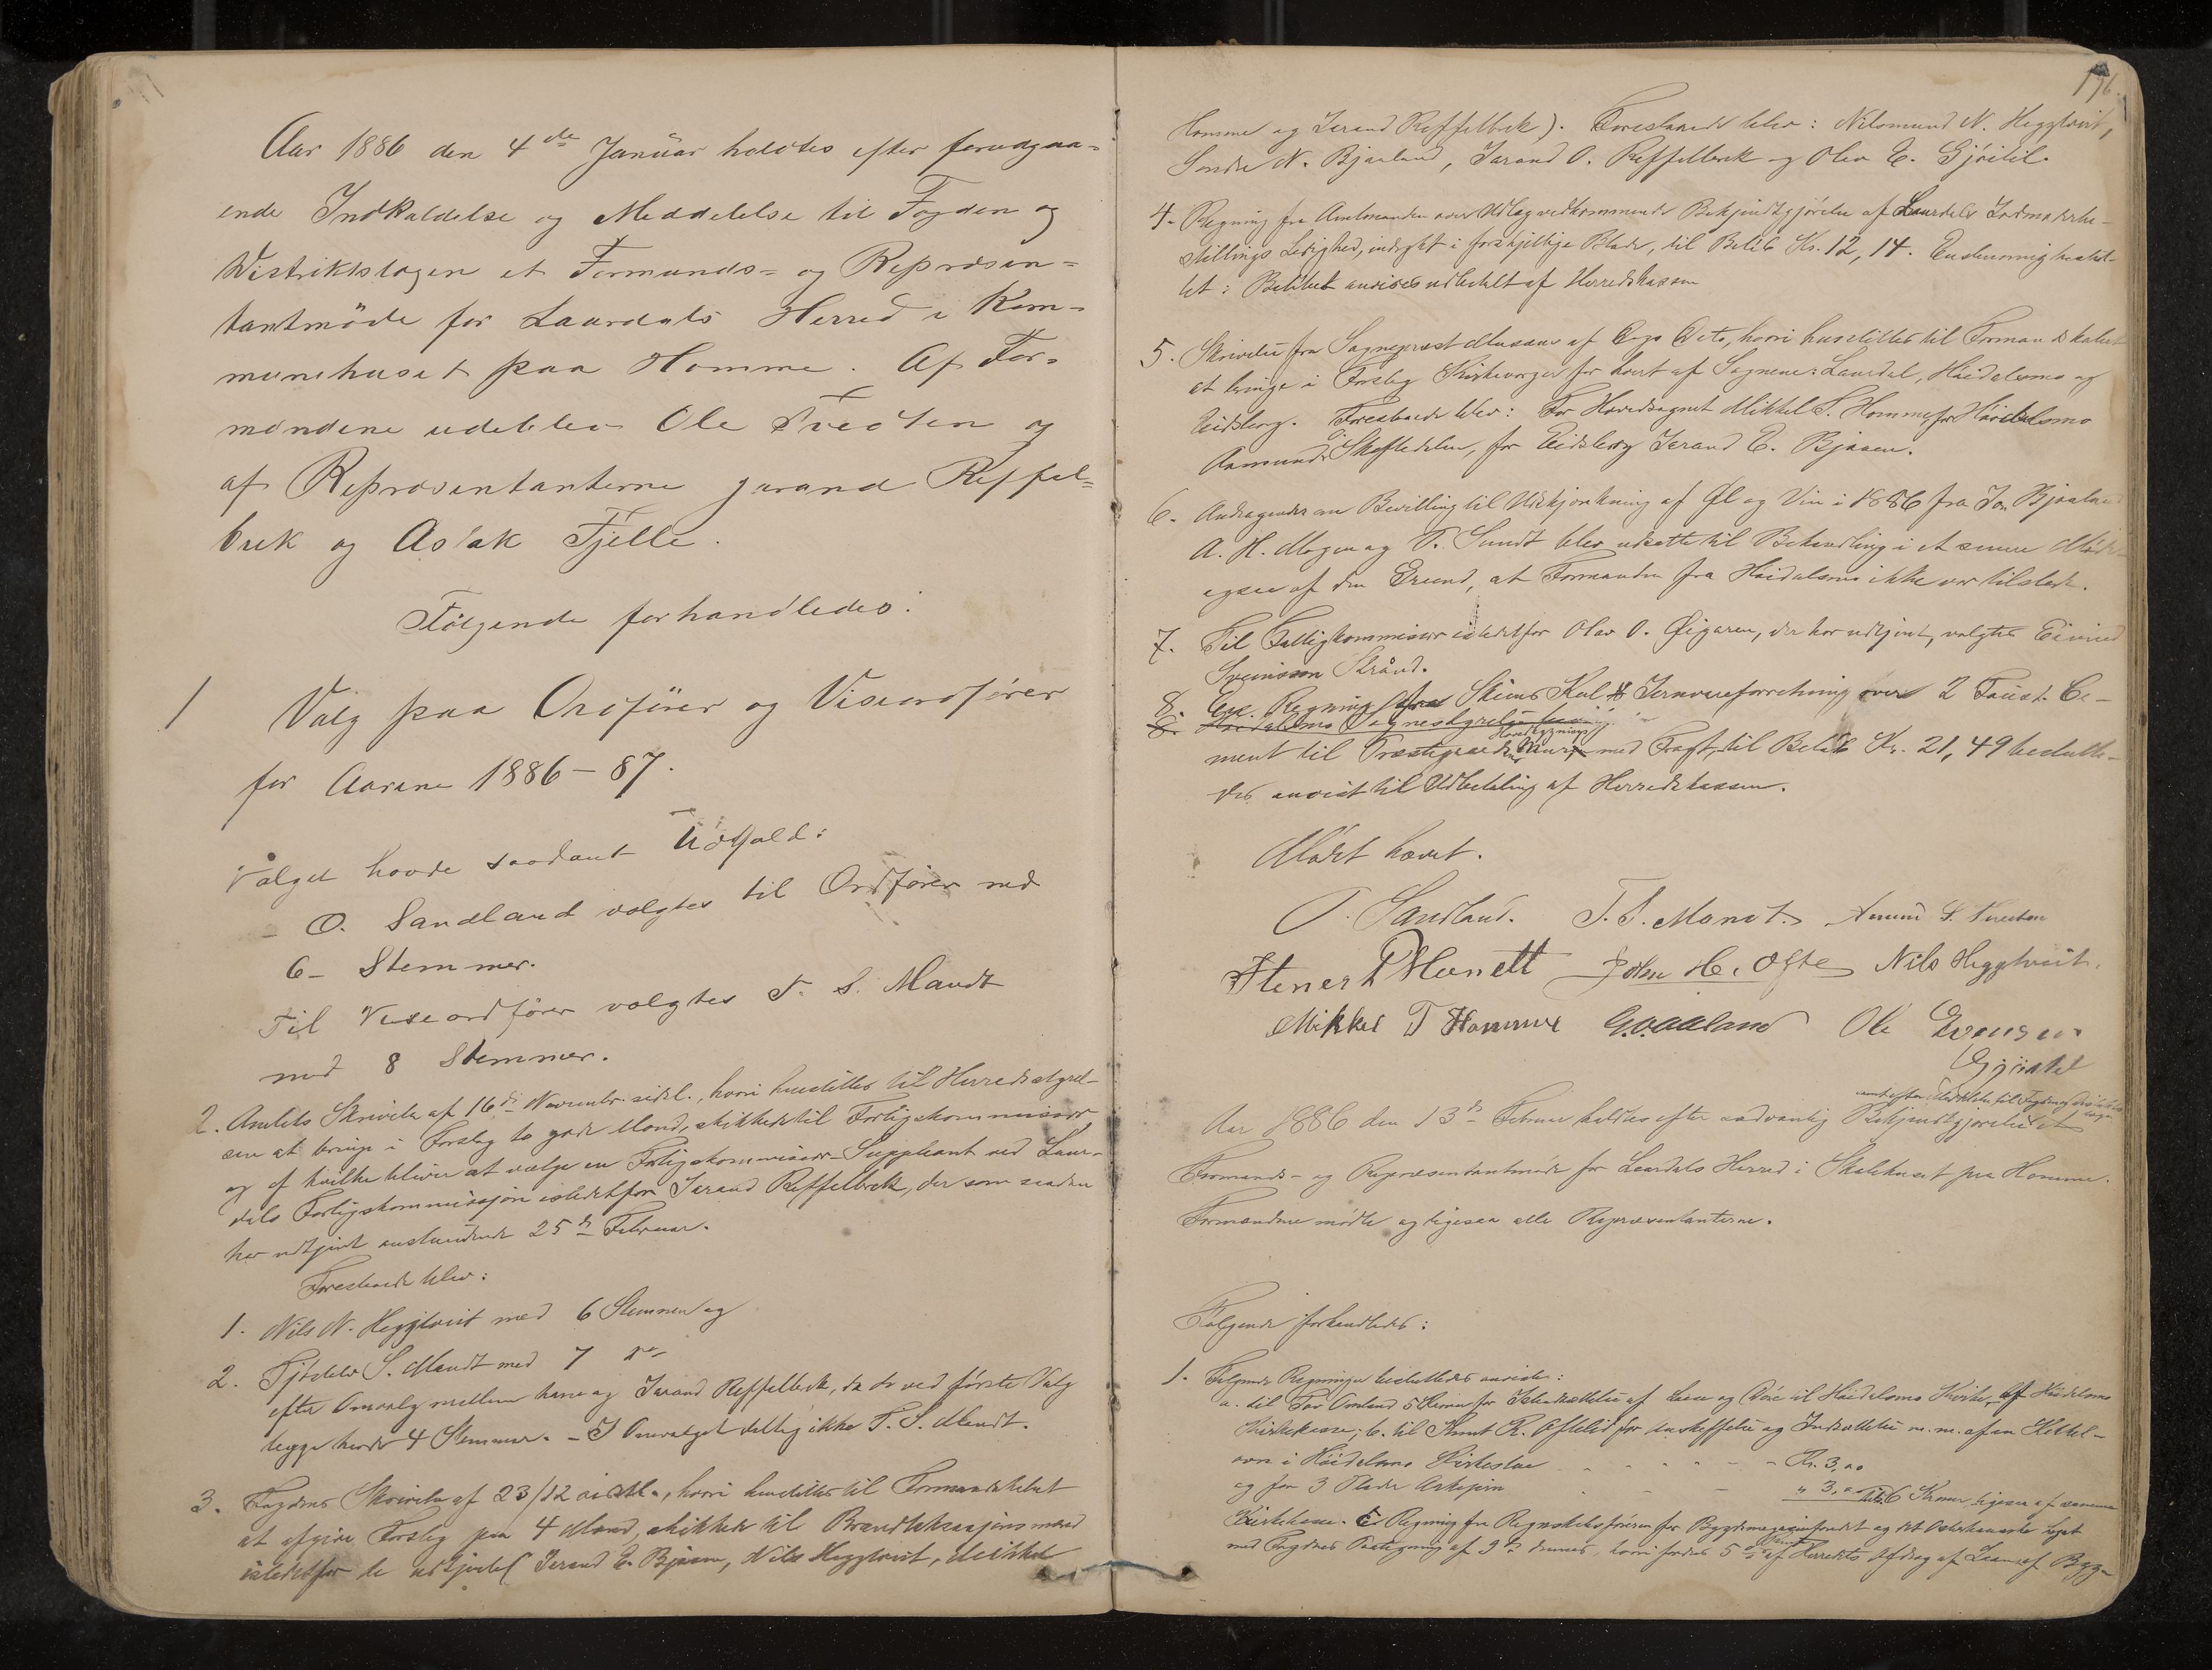 Aar 1886 den 4de Januar holdtes efter forudgaa=
ende Indkaldelse og Meddelelse til Fogden og
Distriktslægen et Formands= og Repræsen=
tantmöde for Laurdals Herred i Kom=
munehuset paa Homme. Af For=
mændene udeblev Ole Tvedten og
af Repræsentanterne Jarand Reffel=
bræk og Aslak Fjelle.
Fölgende forhandledes:
1 Valg paa Ordförer og Viseordförer
for Aarene 1886–87.
Valget havde saadant Udfald:
– O. Sandland valgtes til Ordförer med
6– Stemmer.
Til Viseordförer valgtes T. S. Mandt
med 8 Stemmer.
2. Amtets Skrivelse af 16de Novembr. sidstl., hvori henstilles til Herredsstyrel-
sen at bringe i Forslag to gode Mænd, skikkede til Forligskommissær
og af hvilke bliver at vælge en Forligskommissær-Suppleant ved Laur-
dals Forligskommissjon istedetfor Jarand Reffelbræk, der som saadan
har udtjent anstundende 25de Februar.
Foreslaaede blev:
1. Nils N. Heggtveit med 6 Stemmer og
2. Tjöstolv S. Mandt med 7 do
efter Omvalg mellem ham og Jarand Reffelbræk, da de ved förste Valg
begge havde 4 Stemmer. – I Omvalget deltog ikke T. S. Mandt.
3. Fogdens Skrivelse af 23/12 sidstl., hvori henstilles til Formandskabet
at afgive Forslag paa 4 Mænd, skikkede til Brandtaksasjonsmænd
istedetfor de udtjente (Jarand E. Bjåen, Nils Heggtveit, Mikkel
196.
Homme og Jarand Reffelbræk). Foreslaaede blev: Nilsmund N. Heggtveit,
Sondre N. Bjaaland, Jarand O. Reffelbræk og Olav E. Gjöitil.
4. Regning fra Amtmanden over Udlæg vedkommende Bekjendtgjörelse af Laurdals Jordmoderbe-
stillings Ledighed, indrykt i forskjellige Blade, til Belöb Kr. 12,14. Enstemmig beslut-
tet: Belöbet anvises udbetalt af Herredskassen
5. Skrivelse fra Sogneprest Musæus af Dags Dato, hvori henstilles til Formandskabet
at bringe i Forslag Kirkeverger for hvert af Sognene: Laurdal, Höidalsmo og
Eidsborg. Foreslaaede blev: For Hovedsognet Mikkel S. Homme, for Höidalsmo
Aamund O. Skeftedalen, for Eidsborg Jarand E. Bjaaen.
6. Andragender om Bevilling til Udskjænkning af Øl og Vin i 1886 fra Jon Bjaaland
A. H. Mogen og T. Sundt blev udsatte til Behandling i et senere Möde
ogsaa af den Grund, at Formanden fra Höidalsmo ikke var tilstede.
7. Til Fattigkommissær istedetfor Olav O. Øigaren, der har udtjent, valgtes Eivind
Sveinsson Strånd.
8. Höidalsmo Sognestyrelse
8. En Regning fra Skiens Kul & Jernvareforretning over 2 Tønd. Ce-
ment til Præstegaardens Hovedbygnings Mur med Fragt, til Belöb Kr. 21,49 beslutte-
des anvist til Udbetaling af Herredskassen.
Mödet hævet.
O. Sandland. T. S. Mandt.
Stener P Mandt John H. Ofte Nils Heggtveit.
Mikkel T Homme G. O. Aaland Ole Evensen
Gjöitil
Aar 1886 den 13de Februar holdtes efter sædvanlig Bekjendtgjörelse samt efter Meddelelse til Fogden og Distriktslægen et
Formands- og Repræsentantmöde for Laurdals Herred i Skolehuset paa Homme.
Formændene mödte og ligesaa alle Repræsentanterne.
Følgende forhandledes:
1. Følgende Regninger besluttedes anviste:
a. til Tor Omland 5 Kroner for Istandsættelse af Laase og Döre til Höidalsmo Kirke, af Höidalsmo
Kirkekasse; b. til Knut R. Oftelid for Anskaffelse og Indsættelse m. m. af en Kakkel-
ovn i Höidalsmo Kirkestue - - - - - - Kr. 3,00
og for 3 Plader Askejern - - - " 3,00 tils. 6 Kroner, ligesaa af samme
Kirkekasse. c. Regning fra Regnskabsföreren for Bygdemagasinfondet og det Oterholmske Legat
med Fogdens Paategning af 9de dennes, hvori fordres 5 af Herredets Afdrag af Laan af Bygde-